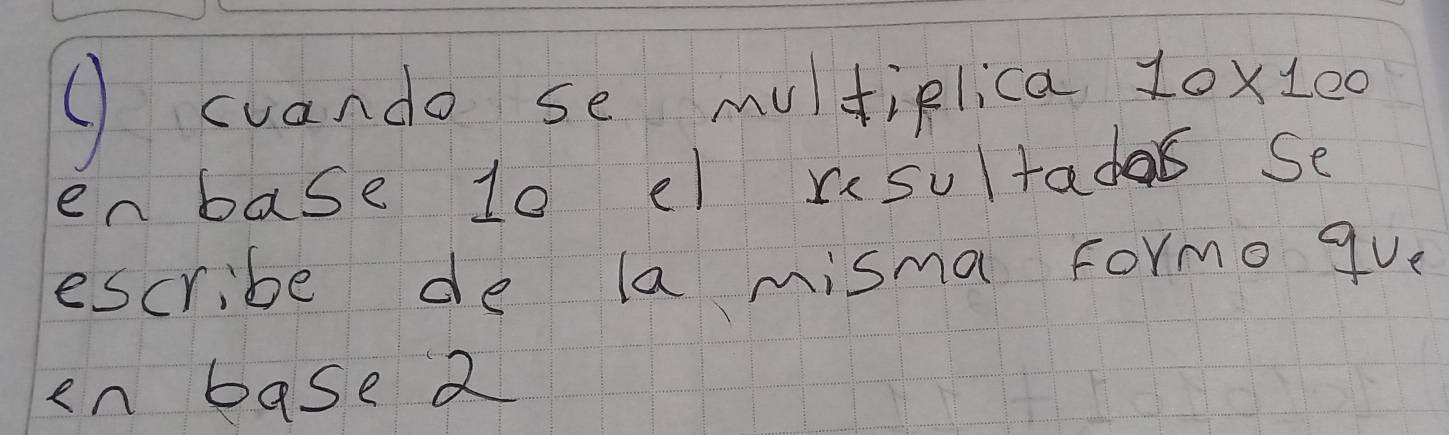 c) cuando se multiplica 10x100
en base 10 el resultados se
escribe de la misma formo que
en base 2